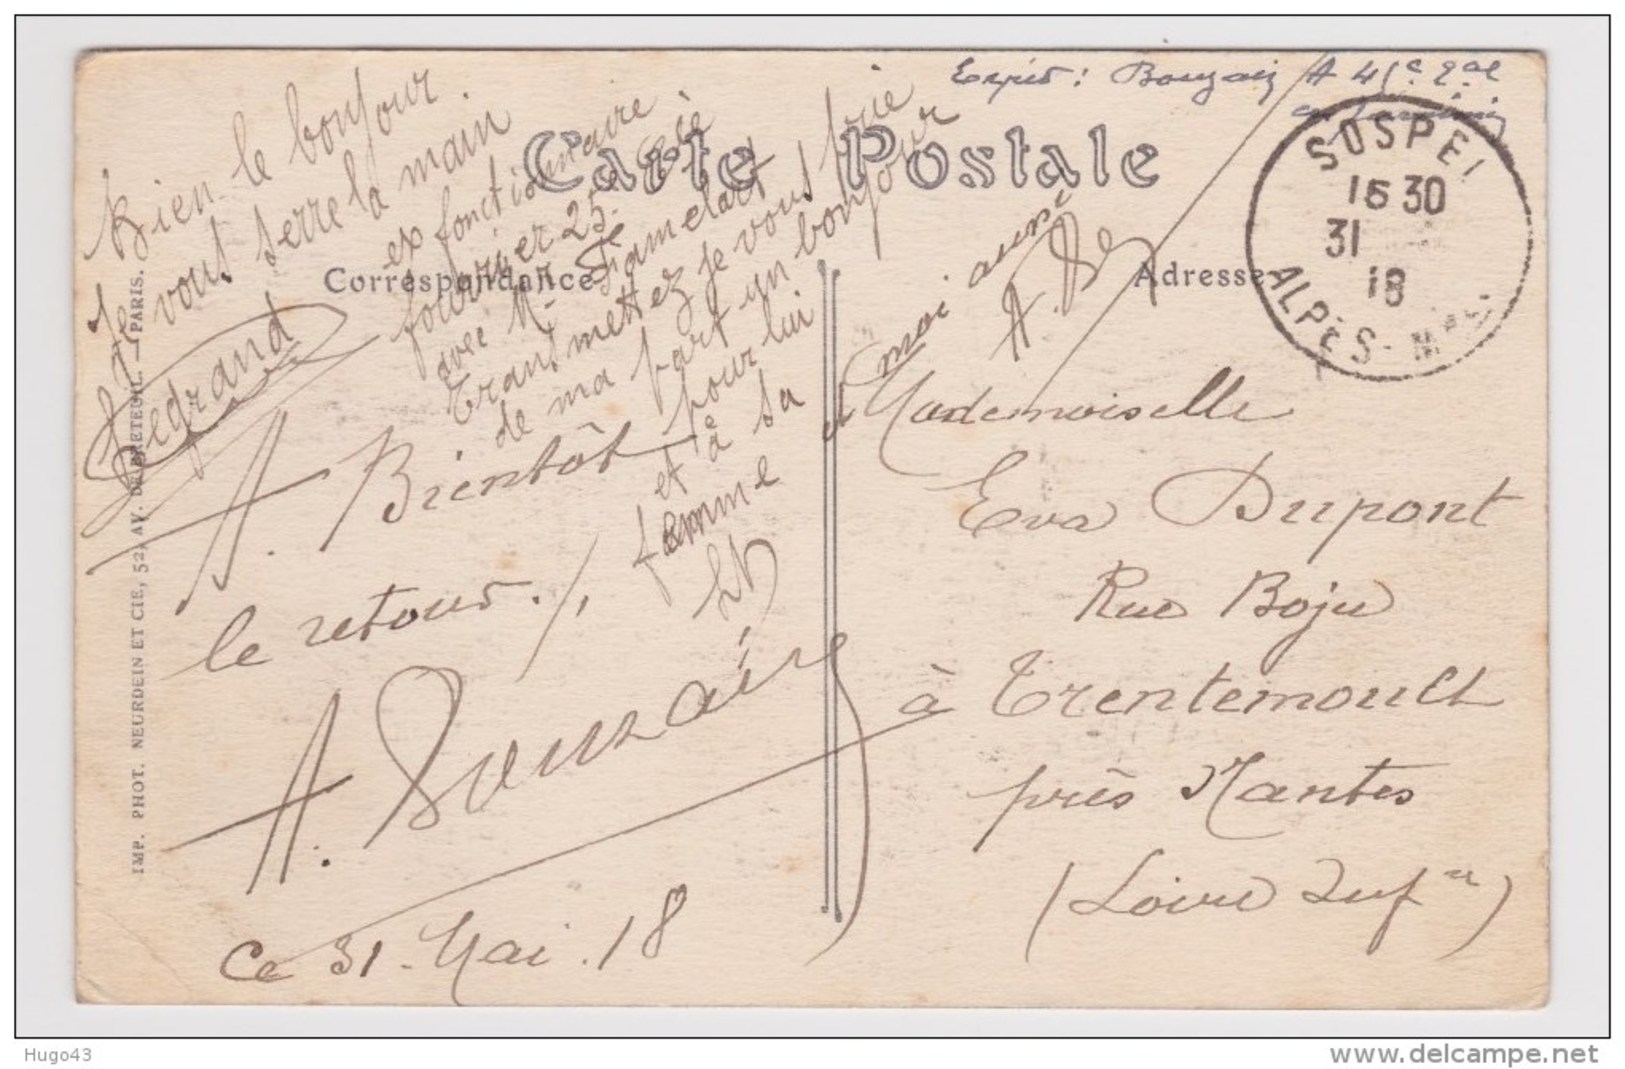 Bien le bonjour.
Je vous serre la main
Legrand
ex fonctionnaire
fourrier 25e Cie
avec Mr
Transmettez je vous prie
de ma part un bonjour
pour lui
et à sa
femme
A. Bientôt
le retour./.
Ce 31. Mai. 18
Expéd:
Carte Postale
Correspondance
Adresse
SOSPEL
15 30
31
18
ALPES-Mmes
et moi aussi
Mademoiselle
Eva Dupont
Rue Boju
à Trentemoult
près Nantes
(Loire Infre)
IMP. PHOT. NEURDEIN ET CIE, 52, AV. DE BRETEUIL. — PARIS.
Hugo43
www.delcampe.net